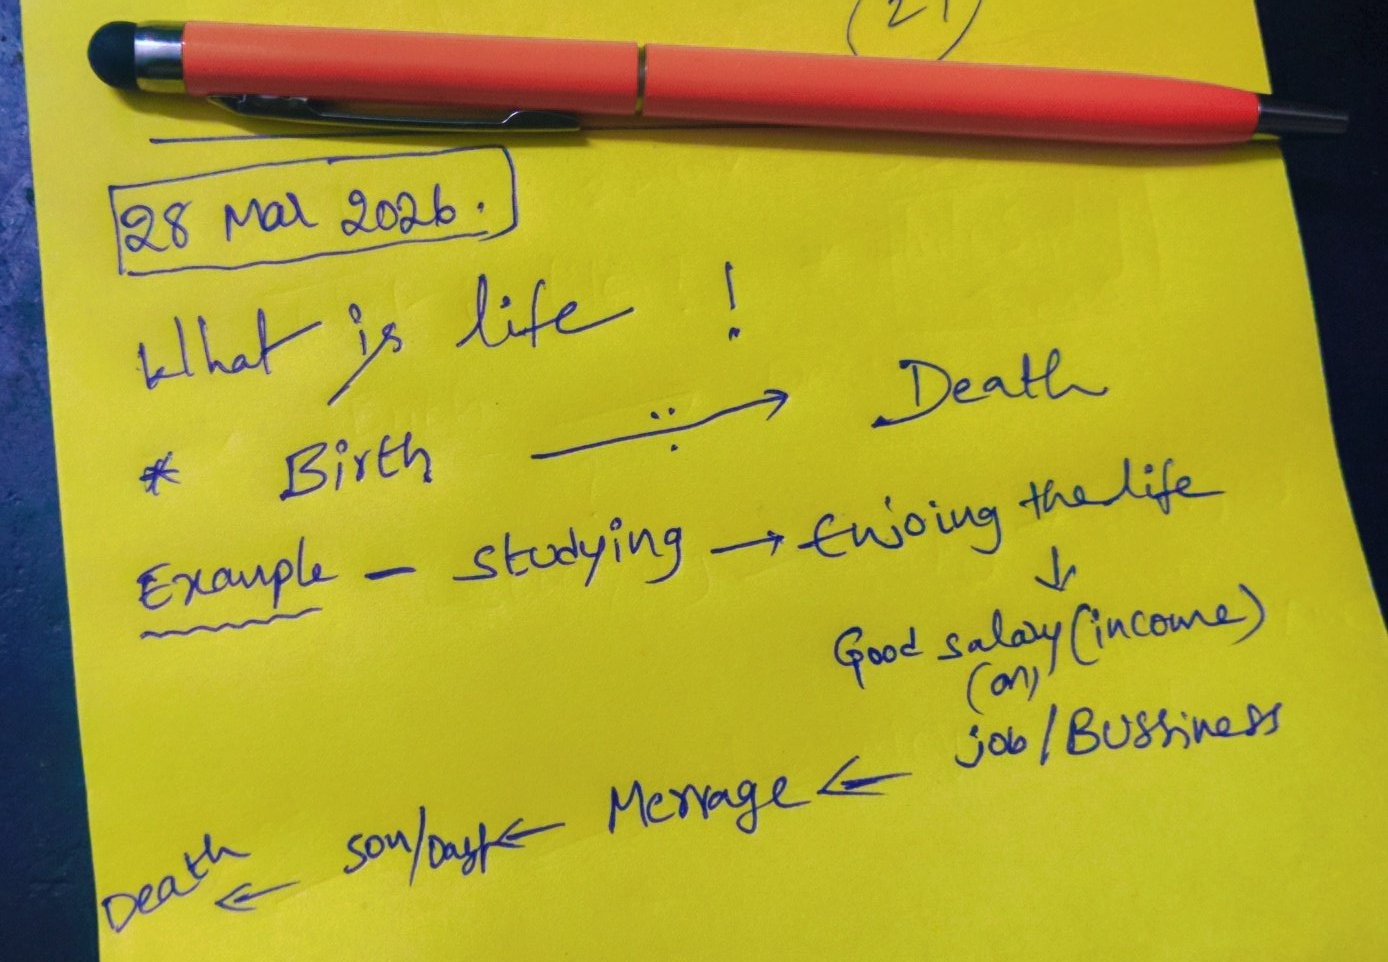 21
28 Mar 2026.
What is life !
* Birth ⟶ Death
Example - studying → Enjoing the life
↓
Good salary (income)
(or)
job/BUSSiness
Merrage ←
son/ ←
Death ←